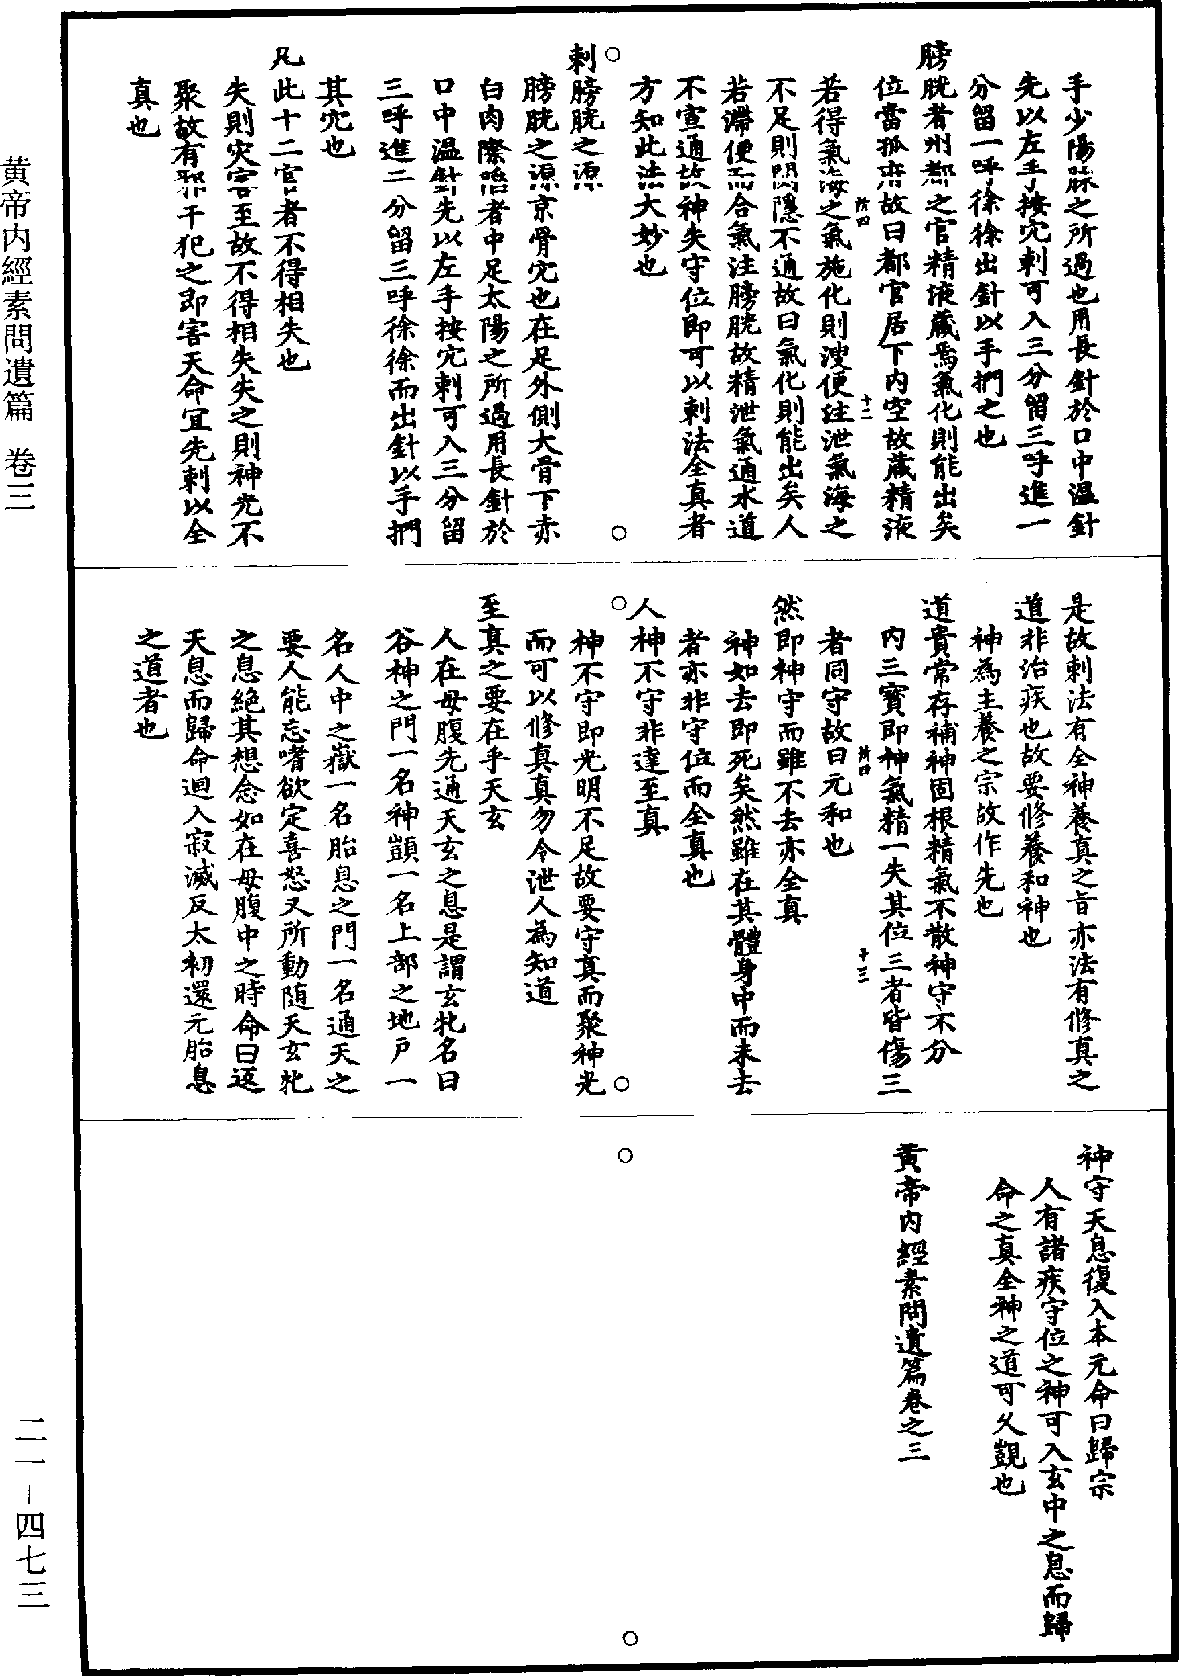 手少陽脉之所過也用長針於口中温針
先以左手按穴刺可入三分留三呼進一
分留一呼徐徐出針以手捫之也
膀胱者州都之官精液藏焉氣化則能出矣
位當孤府故曰都官居下内空故藏精液
若得氣海之氣施化則溲便注泄氣海之
不足則閟隱不通故曰氣化則能出矣人
若滯便而合氣注膀胱故精泄氣通水道
不宣通故神失守位即可以刺法全真者
方知此法大妙也
刺膀胱之源
膀胱之源京骨穴也在足外側大骨下赤
白肉際陷者中足太陽之所過用長針於
口中温針先以左手按穴刺可入三分留
三呼進二分留三呼徐徐而出針以手捫
其穴也
凡此十二官者不得相失也
失則災害至故不得相失失之則神光不
聚故有邪干犯之即害天命宜先刺以全
真也
是故刺法有全神養真之旨亦法有修真之
道非治疾也故要修養和神也
神為主養之宗故作先也
道貴常存補神固根精氣不散神守不分
内三寶即神氣精一失其位三者皆傷三
者同守故曰元和也
然即神守而雖不去亦全真
神如去即死矣然雖在其體身中而未去
者亦非守位而全真也
人神不守非達至真
神不守即光明不足故要守真而聚神光
而可以修真真勿令泄人為知道
至真之要在乎天玄
人在母腹先通天玄之息是謂玄牝名曰
谷神之門一名神顗一名上部之地戶一
名人中之嶽一名胎息之門一名通天之
要人能忘嗜欲定喜怒又所動随天玄牝
之息絶其想念如在母腹中之時命曰返
天息而歸命迴入寂滅反太初還元胎息
之道者也
神守天息復入本元命曰歸宗
人有諸疾守位之神可入玄中之息而歸
命之真全神之道可久覬也
黄帝内經素問遺篇卷之三
黄帝内經素問遺篇 卷三
二一－四七三